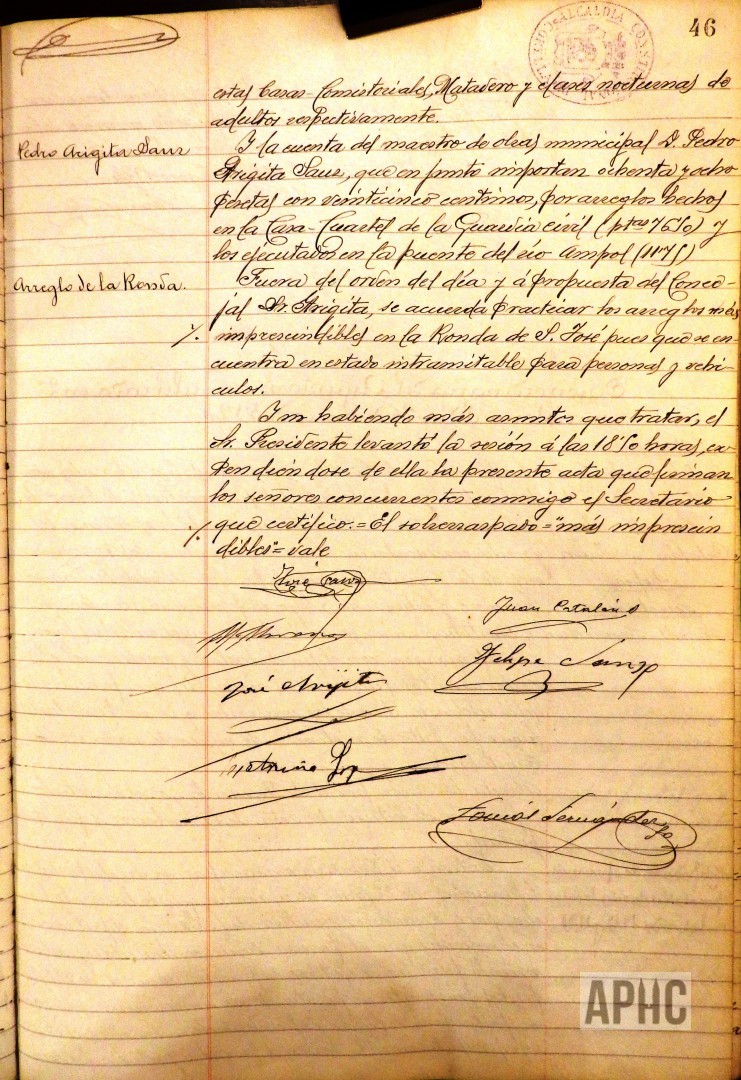 46
ALCALDIA CONST
estas Casas-Comistoriales, Matadero y clases nocturnas de
adultos respectivamente.
Pedro Arigita Sanz
Y la cuenta del maestro de obras municipal D. Pedro
Arigita Sanz, que en junto importan ochenta y ocho
pesetas con veinticinco centimos, por arreglos hechos
en la Casa-Cuartel de la Guardia civil (ptas 76'50) y
los ejecutados en la puente del rio Ampol (11'75)
Arreglo de la Ronda.
Fuera del orden del día y á propuesta del Conce-
jal Sr. Arigita, se acuerda practicar los arreglos más
imprescindibles en la Ronda de S. José pues que se en-
cuentra en estado intramitable para personas y vehi-
culos.
Y no habiendo más asuntos que tratar, el
Sr. Presidente levantó la sesión á las 18'50 horas, ex-
tendiéndose de ella la presente acta que firman
los señores concurrentes conmigo el Secretario
que certifico.= El sobrerraspado="más imprescin
dibles"= vale
José Sanz
Juan Catalán
Felipe Sanz
José Arigita
Tomás Fernández
APHC